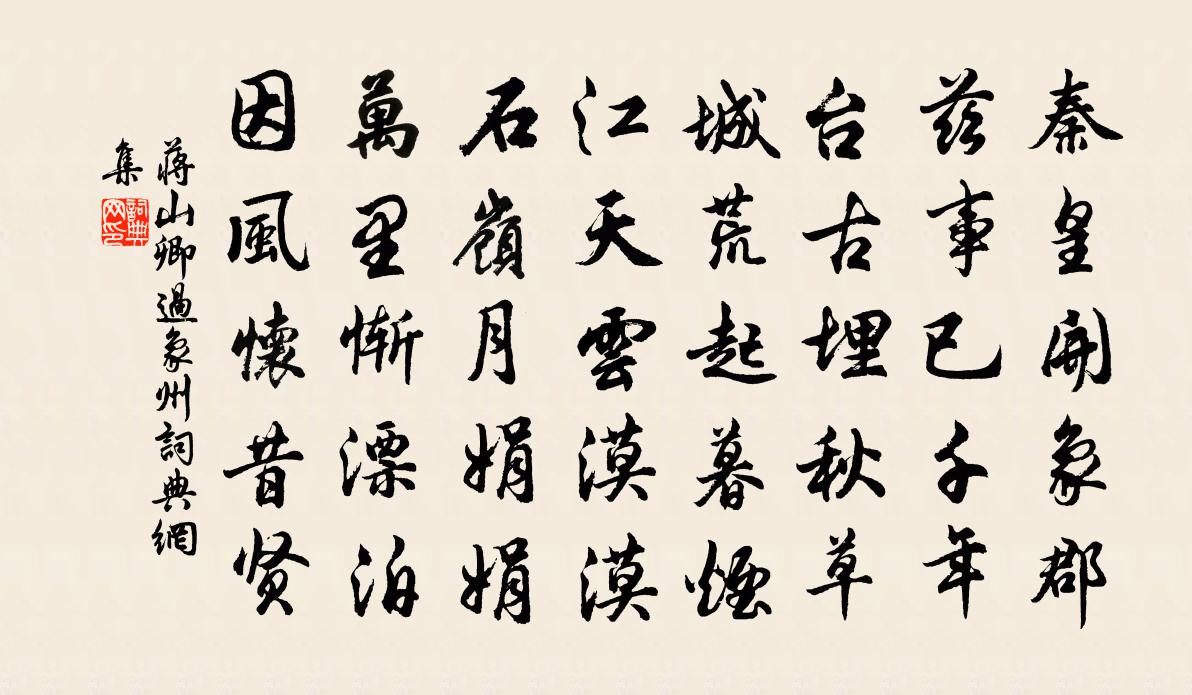 秦皇開象郡
茲事已千年
台古埋秋草
城荒起暮煙
江天雲漠漠
石嶺月娟娟
萬里慚漂泊
因風懷昔贤
蔣山卿過象州詞典網
集
詞典網印